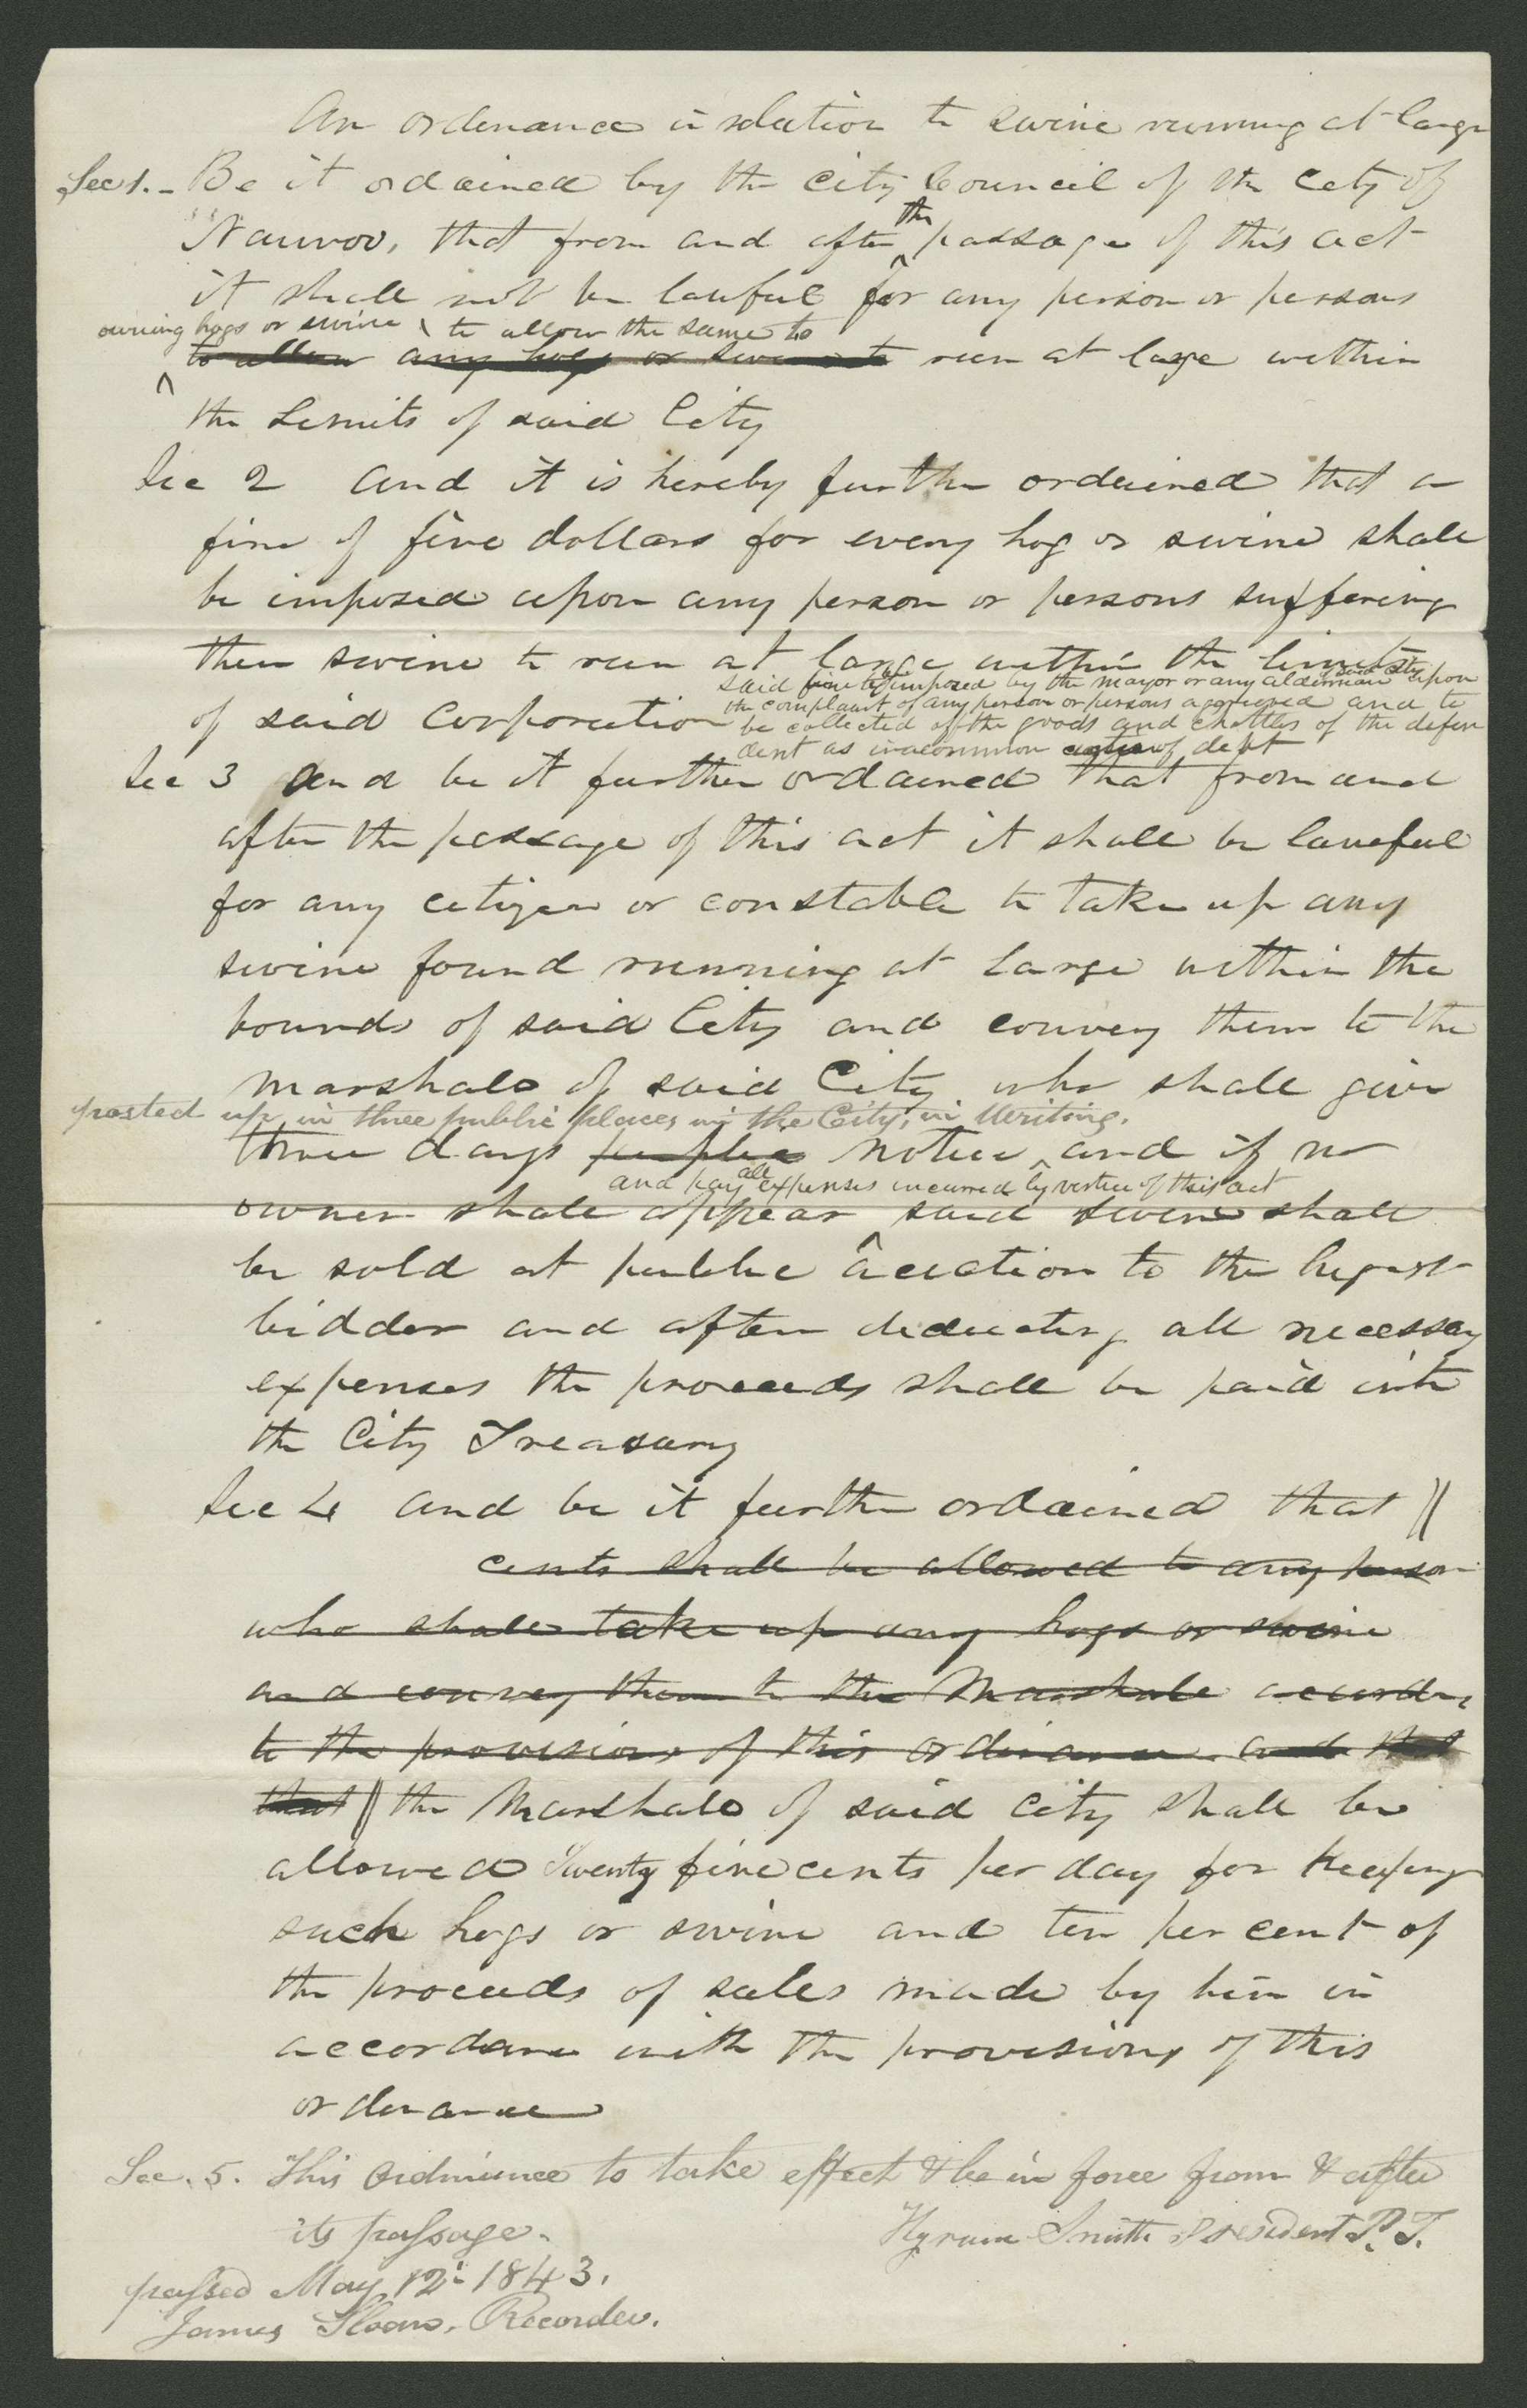 An ordinance in relation to swine running at large
Sec 1. - Be it ordained by the City Council of the City of
Nauvoo, that from and after the passage of this act
it shall not be lawful for any person or persons
owning hogs or swine to allow the same to
to allow any hogs or swine to run at large within
the Limits of said City
Sec 2 and it is hereby further ordained that a
fine of five dollars for every hog or swine shall
be imposed upon any person or persons suffering
their swine to run at large within the limits
said fine to be imposed by the mayor or any alderman of said city upon
the complaint of any person or persons aggrieved and to
of said corporation
be collected off the goods and chattles of the defen
dent as in a common action of debt
Sec 3 and be it further ordained that from and
after the passage of this act it shall be lawful
for any citizen or constable to take up any
swine found running at large within the
bounds of said City and convey them to the
marshall of said City who shall give
posted up in three public places in the City, in Writing.
three days public notice and if no
and pay all expenses incurred by vertue of this act
owner shall appear said swine shall
be sold at public auction to the higest
bidder and after deducting all necessary
expenses the proceeds shall be paid into
the City Treasury
Sec 4 and be it further ordained that
cents shall be allowed to any person
who shall take up any hogs or swine
and convey them to the Marshall according
to the provisions of this ordinance and that
that the Marshall of said City shall be
allowed Twenty five cents per day for keeping
such hogs or swine and ten per cent of
the proceeds of sales made by him in
accordance with the provisions of this
ordinance
Sec. 5. This Ordinance to take effect & be in force from & after
its passage.
Hyrum Smith President P. T.
passed May 12th 1843.
James Sloan, Recorder.